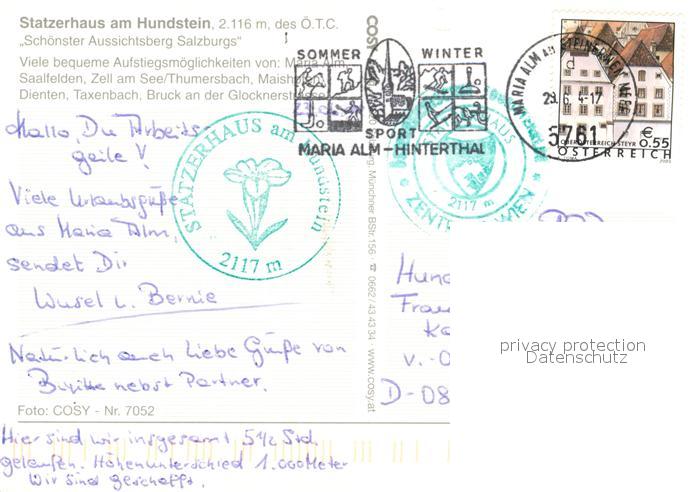 Statzerhaus am Hundstein, 2.116 m, des Ö.T.C.
„Schönster Aussichtsberg Salzburgs"
Viele bequeme Aufstiegsmöglichkeiten von: Maria Alm,
Saalfelden, Zell am See/Thumersbach, Maish
Dienten, Taxenbach, Bruck an der Glockner
Hallo, Du Arbeits-
geile!
Viele Urlaubsgrüße
aus Maria Alm,
sendet Dir
Wusel u. Bernie
Natürlich auch liebe Grüße von
Birgitte nebst Partner.
Foto: COSY - Nr. 7052
Hier sind wir insgesamt 5½ Std.
gelaufen. Höhenunterschied 1.000 Meter
Wir sind geschafft.
STATZERHAUS am Hundstein
2117 m
COSY
Münchner BStr. 156 · ☎ 0662/43 43 34 · www.cosy.at
SOMMER WINTER
SPORT
MARIA ALM-HINTERTHAL
HAUS
2117 m
ZENT WIEN
MARIA ALM AM STEINERNEN MEER
d
29.6.4-17
5761
€ 0.55
OBERÖSTERREICH STEYR
ÖSTERREICH
Fra
v.
D-08
privacy protection
Datenschutz